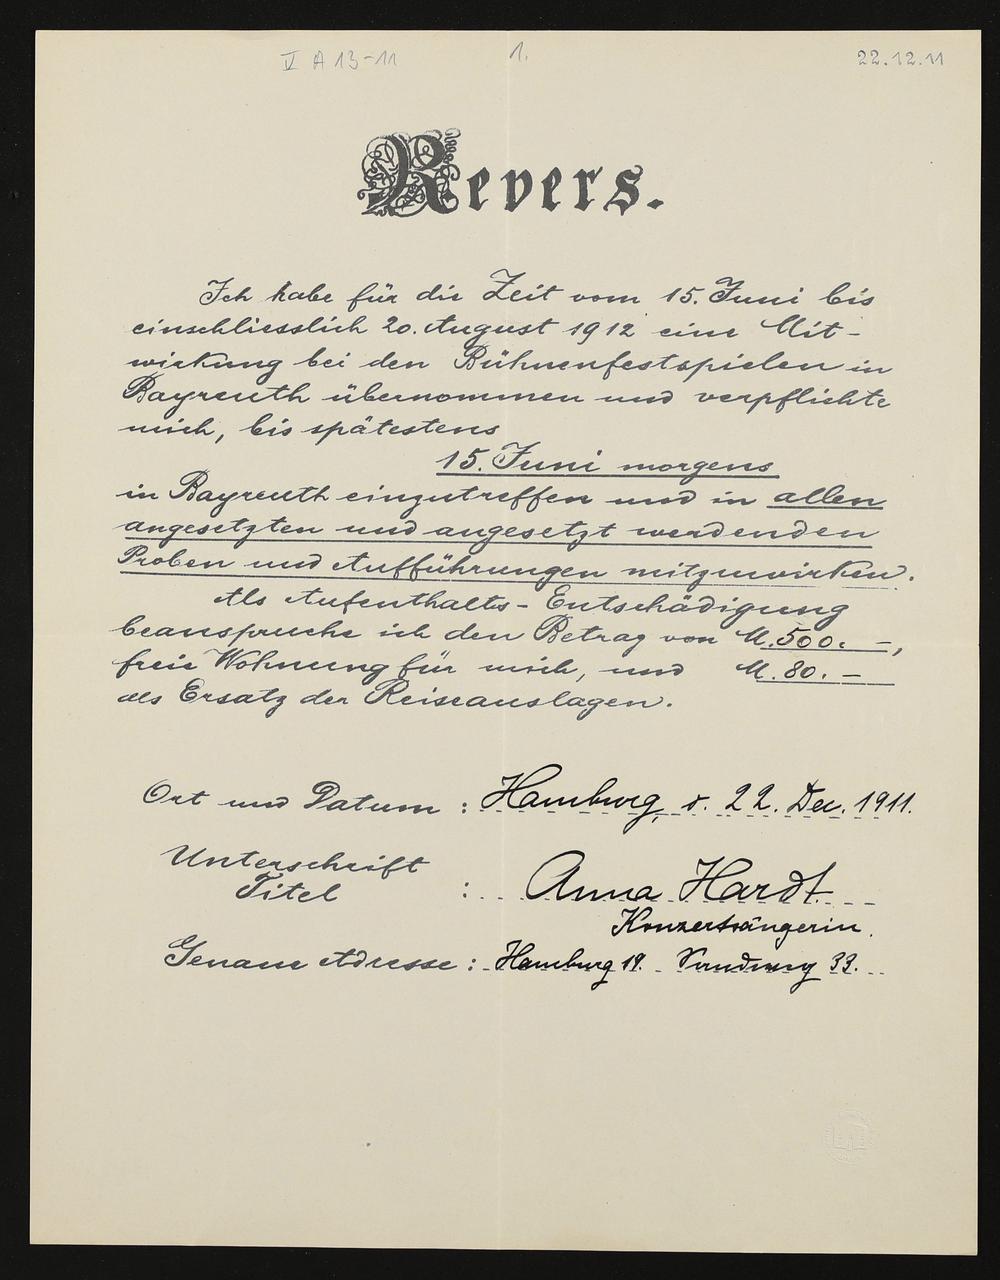 V A 13-11
1.
22.12.11
Revers.
Ich habe für die Zeit vom 15. Juni bis
einschliesslich 20. August 1912 eine Mit-
wirkung bei den Bühnenfestspielen in
Bayreuth übernommen und verpflichte
mich, bis spätestens
15. Juni morgens
in Bayreuth einzutreffen und in allen
angesetzten und angesetzt werdenden
Proben und Aufführungen mitzuwirken.
Als Aufenthalts-Entschädigung
beanspruche ich den Betrag von M. 500.—,
freie Wohnung für mich, und M. 80.—
als Ersatz der Reiseauslagen.
Ort und Datum : Hamburg, d. 22. Dec. 1911.
Unterschrift
Titel : Anna Hardt
Konzertsängerin.
Genaue Adresse : Hamburg 19. 33.